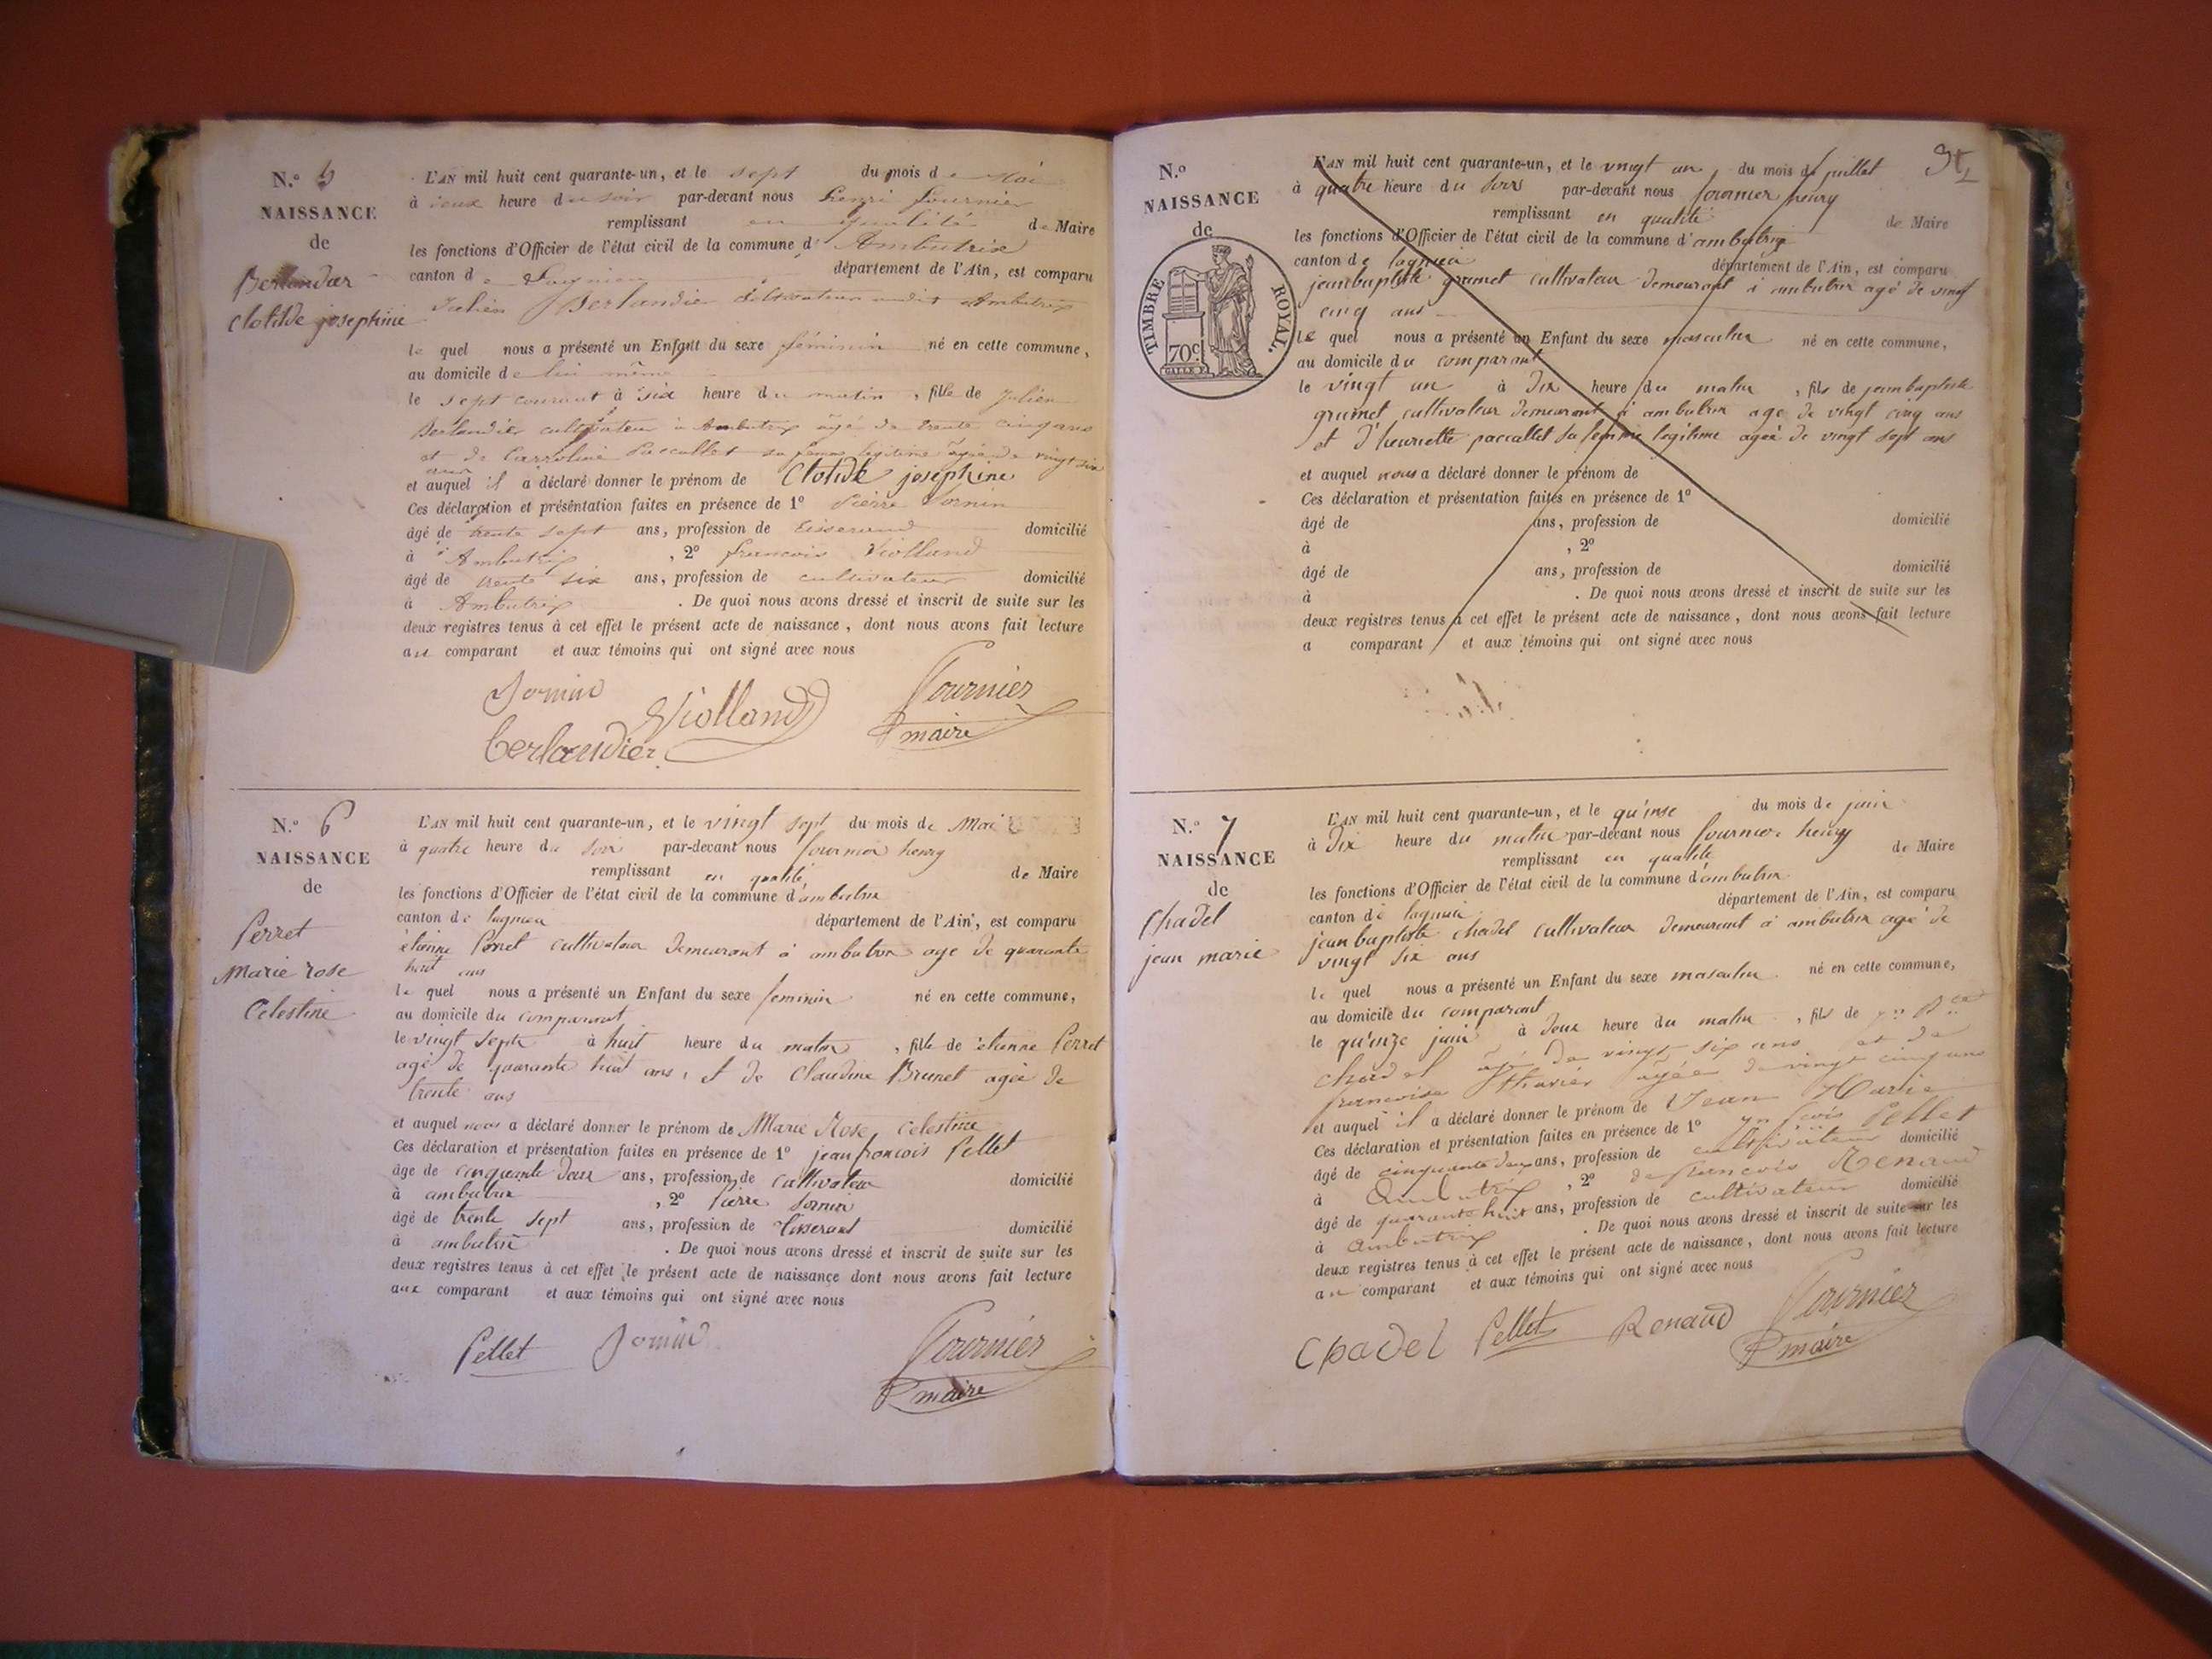 N.º 5
NAISSANCE
de
Berlandier
Clotilde josephine
L'AN mil huit cent quarante-un, et le sept du mois de Mai
à deux heure du soir par-devant nous henri fournier
remplissant en qualité de Maire
les fonctions d'Officier de l'état civil de la commune d' Ambutrix
canton de Lagnieu département de l'Ain, est comparu
Julien Berlandier cultivateur audit Ambutrix
le quel nous a présenté un Enfant du sexe féminin né en cette commune,
au domicile de lui même
le sept courant à six heure du matin, fille de julien
Berlandier cultivateur à Ambutrix âgé de trente cinq ans
et de Carroline Paccallet sa femme légitime âgée de vingt six
ans
et auquel il a déclaré donner le prénom de Clotilde josephine
Ces déclaration et présentation faites en présence de 1º Pierre Sornin
âgé de trente sept ans, profession de tisserand domicilié
à Ambutrix, 2º francois Violland
âgé de trente six ans, profession de cultivateur domicilié
à Ambutrix. De quoi nous avons dressé et inscrit de suite sur les
deux registres tenus à cet effet le présent acte de naissance, dont nous avons fait lecture
au comparant et aux témoins qui ont signé avec nous
Sornin
Violland
Fournier
berlandier
maire
N.º 6
NAISSANCE
de
Perret
Marie rose
Celestine
L'AN mil huit cent quarante-un, et le vingt sept du mois de Mai
à quatre heure du soir par-devant nous fournier henry
remplissant en qualité de Maire
les fonctions d'Officier de l'état civil de la commune d'ambutrix
canton de lagnieu département de l'Ain, est comparu
étienne Perret cultivateur demeurant à ambutrix age de quarante
huit ans
le quel nous a présenté un Enfant du sexe feminin né en cette commune,
au domicile du comparant
le vingt sept à huit heure du matin, fille de étienne Perret
agé de quarante huit ans, et de Claudine Brunet agée de
trente ans
et auquel nous a déclaré donner le prénom de Marie Rose Celestine
Ces déclaration et présentation faites en présence de 1º jean francois Pellet
âge de cinquante deux ans, profession de cultivateur domicilié
à ambutrix, 2º Pierre Sornin
âgé de trente sept ans, profession de tisserant domicilié
à ambutrix. De quoi nous avons dressé et inscrit de suite sur les
deux registres tenus à cet effet le présent acte de naissance dont nous avons fait lecture
aux comparant et aux témoins qui ont signé avec nous
Pellet Sornin Fournier
maire
N.º
NAISSANCE
de
TIMBRE ROYAL.
70c
L'AN mil huit cent quarante-un, et le vingt un du mois de juillet
à quatre heure du soirs par-devant nous fournier henry
remplissant en qualité de Maire
les fonctions d'Officier de l'état civil de la commune d'ambutrix
canton de lagnieu département de l'Ain, est comparu
jean baptiste grumet cultivateur demeurant à ambutrix agé de vingt
cinq ans
le quel nous a présenté un Enfant du sexe masculin né en cette commune,
au domicile du comparant
le vingt un à dix heure du matin, fils de jean baptiste
grumet cultivateur demeurant à ambutrix age de vingt cinq ans
et d'henriette paccallet sa femme legitime agée de vingt sept ans
et auquel nous a déclaré donner le prénom de
Ces déclaration et présentation faites en présence de 1º
âgé de ans, profession de domicilié
à , 2º
âgé de ans, profession de domicilié
à . De quoi nous avons dressé et inscrit de suite sur les
deux registres tenus à cet effet le présent acte de naissance, dont nous avons fait lecture
a comparant et aux témoins qui ont signé avec nous
N.º 7
NAISSANCE
de
Chadel
jean marie
L'AN mil huit cent quarante-un, et le qu'inse du mois de juin
à Dix heure du matin par-devant nous fournier henry
remplissant en qualité de Maire
les fonctions d'Officier de l'état civil de la commune d'ambutrix
canton de lagnieu département de l'Ain, est comparu
jean baptiste chadel cultivateur demeurant à ambutrix agé de
vingt six ans
le quel nous a présenté un Enfant du sexe masculin né en cette commune,
au domicile du comparant
le qu'inze juin à deux heure du matin, fils de
chadel âgé de vingt six ans et de
francoise âgée de vingt cinq ans
et auquel il a déclaré donner le prénom de Jean Marie
Ces déclaration et présentation faites en présence de 1º Pellet
âgé de cinquante deux ans, profession de cultivateur domicilié
à Ambutrix, 2º francois Renaud
âgé de quarante huit ans, profession de cultivateur domicilié
à Ambutrix. De quoi nous avons dressé et inscrit de suite sur les
deux registres tenus à cet effet le présent acte de naissance, dont nous avons fait lecture
au comparant et aux témoins qui ont signé avec nous
Chadel Pellet Renaud Fournier
maire